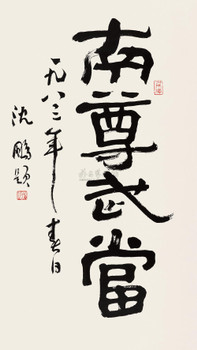 南尊武當
一九八三年春日
沈鵬題